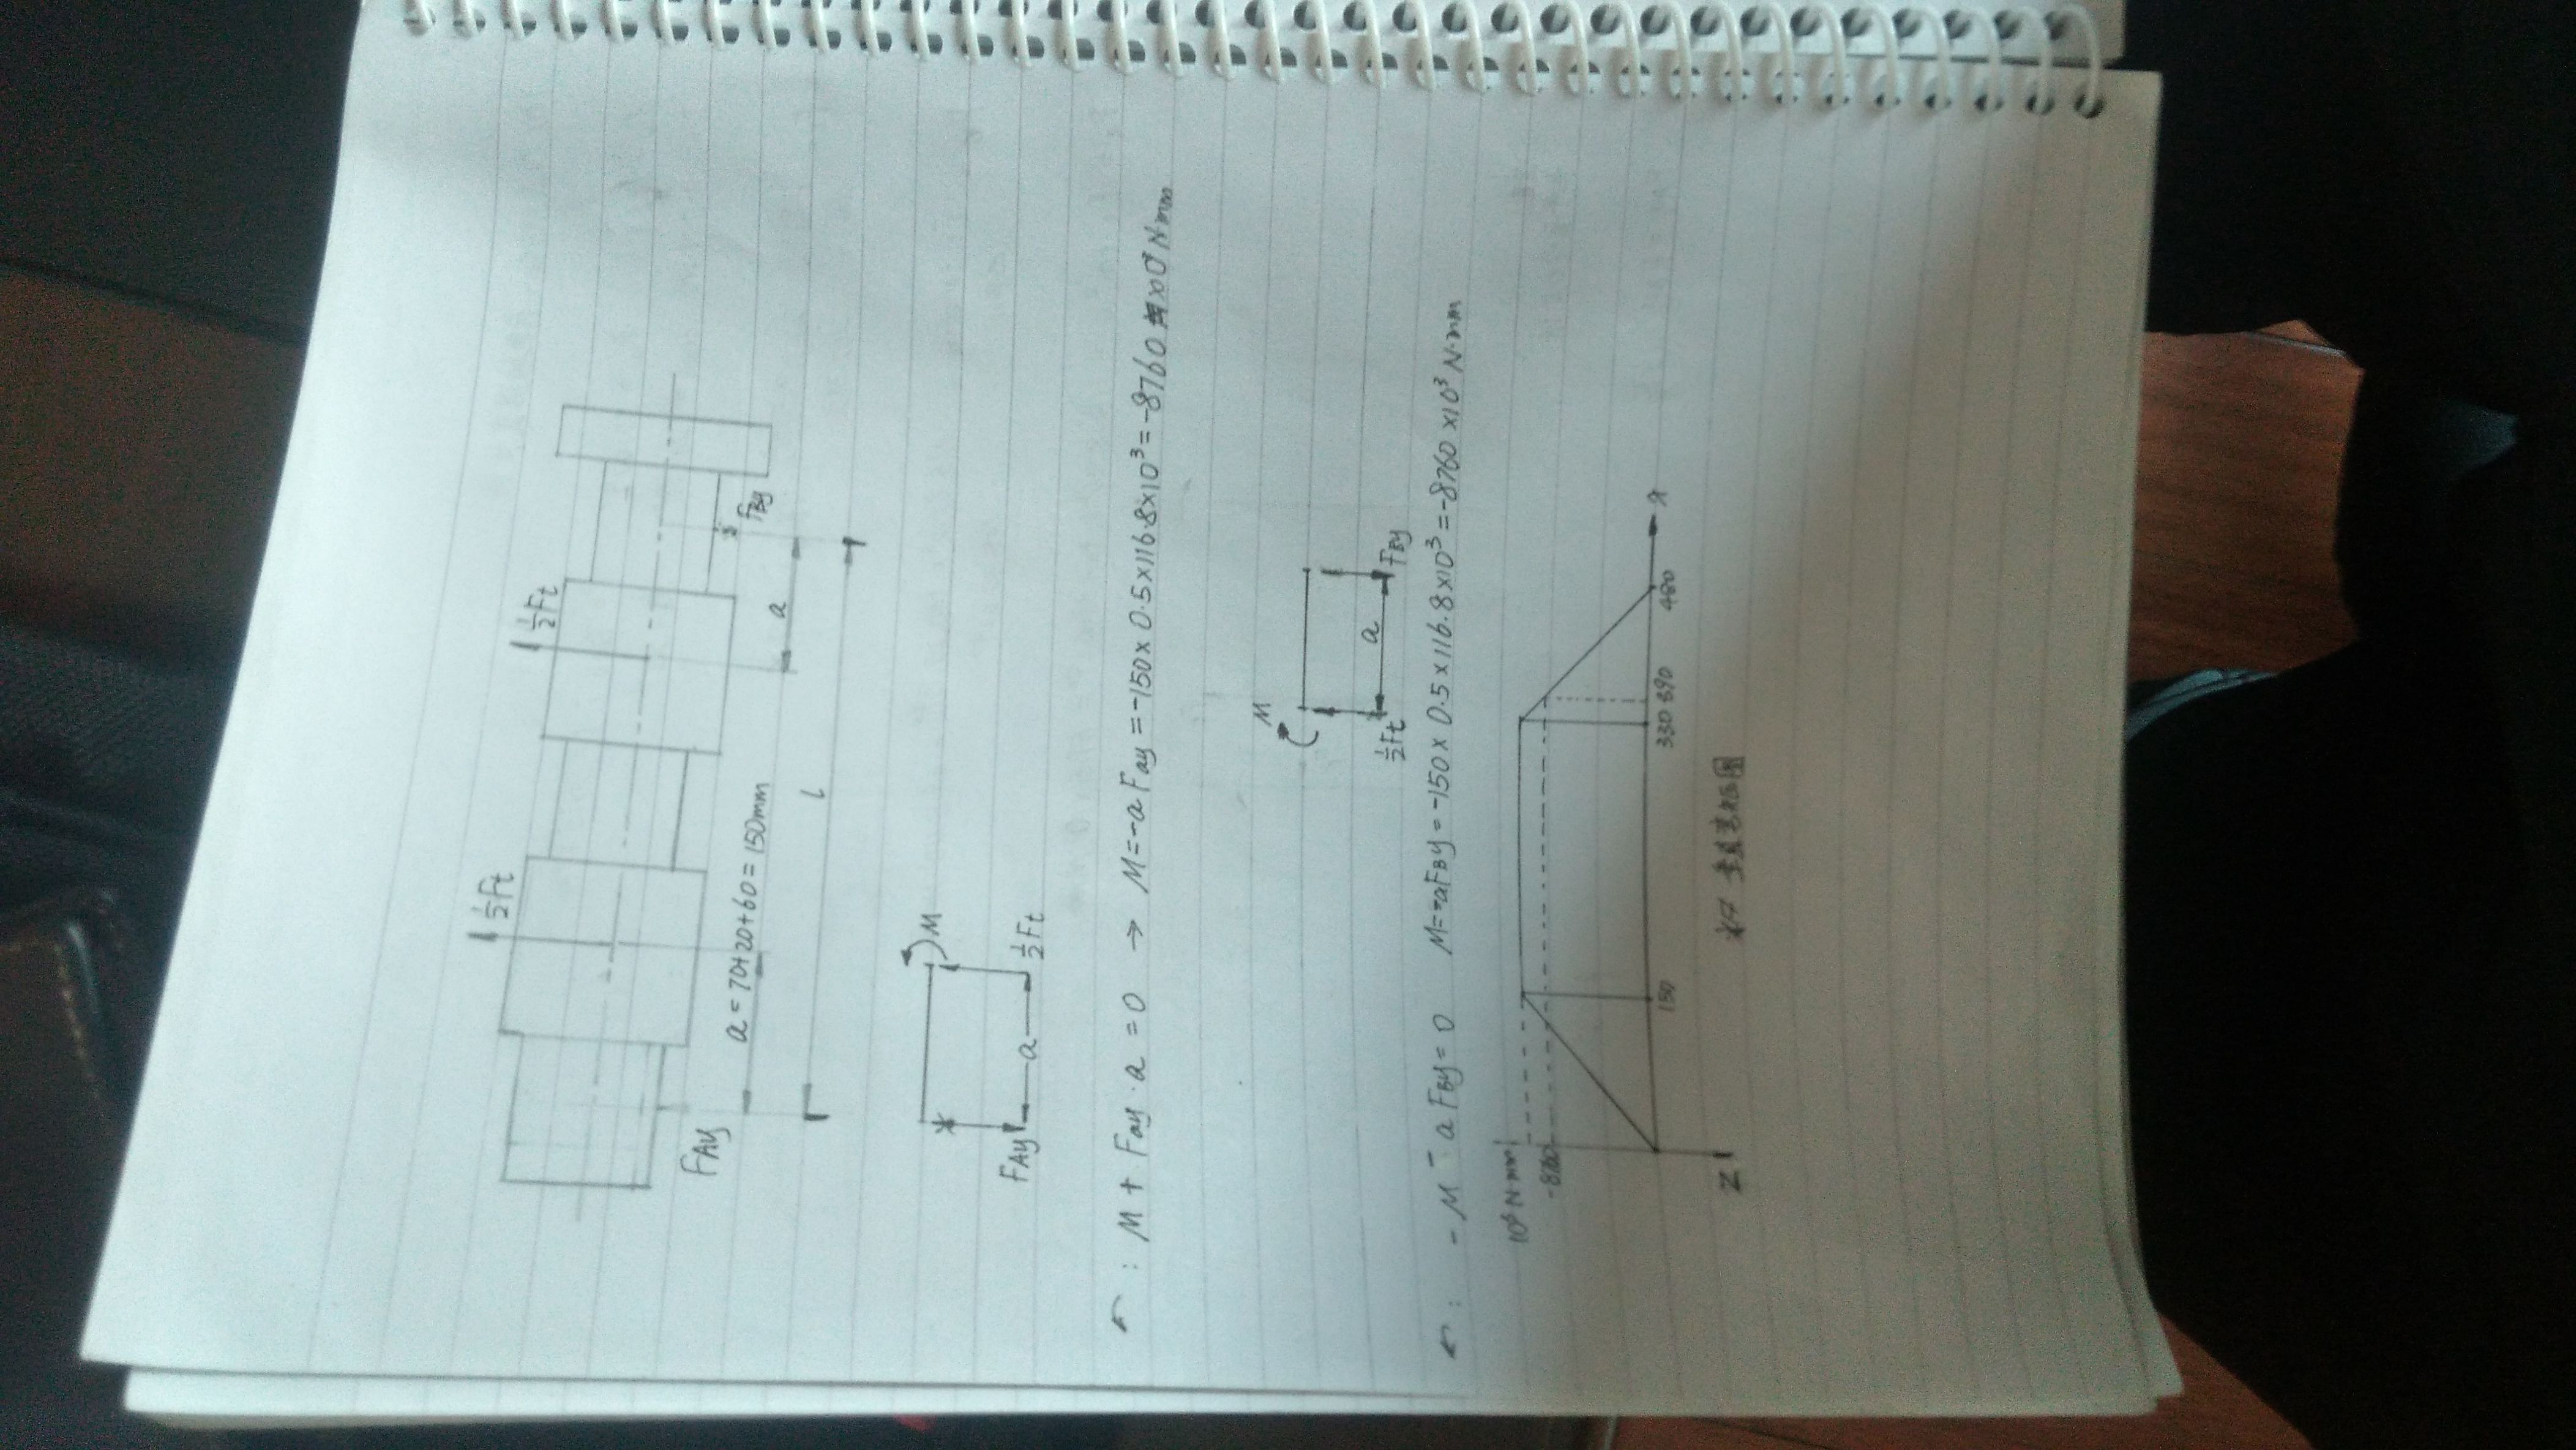 ½Ft
½Ft
FAy
FBy
a = 70+20+60 = 150mm
a
l
M
FAy
a
½Ft
↶ : M + Fay · a = 0 → M = -a Fay = -150 × 0.5 × 116.8 × 10³ = -8760 × 10³ N·mm
M
½Ft
a
FBy
↶ : - M - a FBy = 0 M = -aFBy = -150 × 0.5 × 116.8 × 10³ = -8760 × 10³ N·mm
N·mm
-8760
150
330
390
480
x
Z